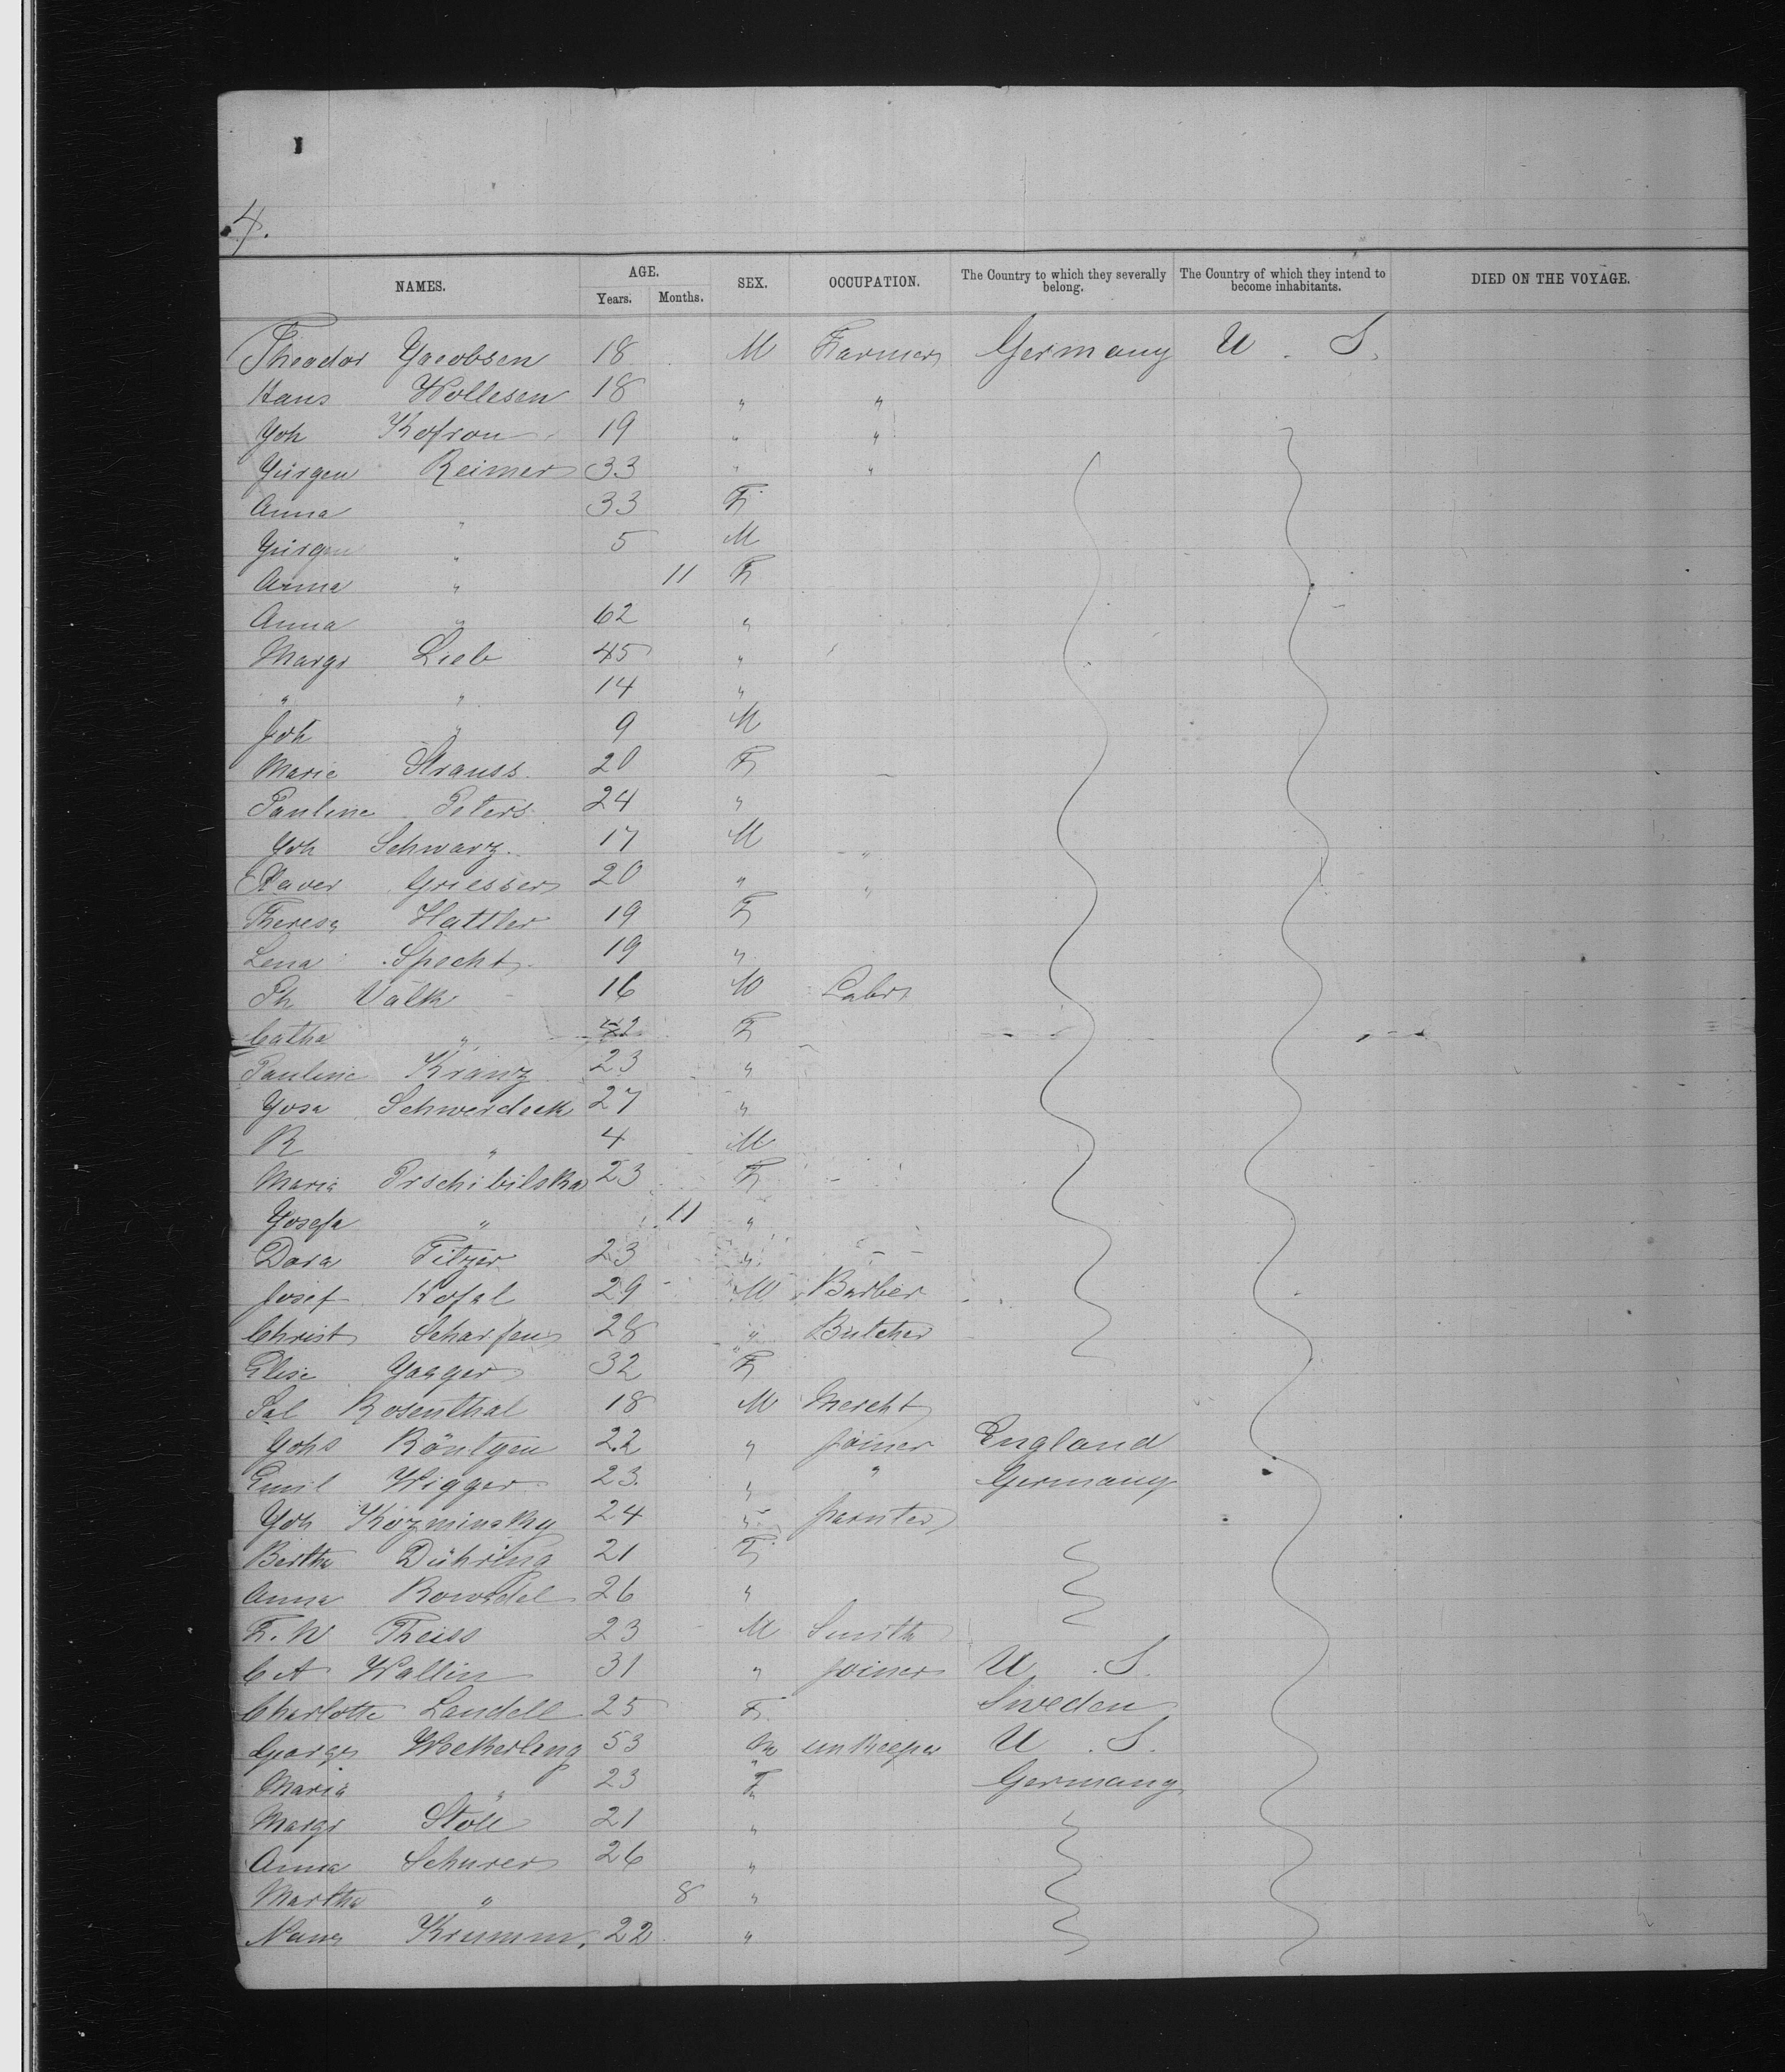 4.
NAMES. AGE. Years. Months. SEX. OCCUPATION. The Country to which they severally belong. The Country of which they intend to become inhabitants. DIED ON THE VOYAGE.
Theodor Yacobsen 18 M Farmer Germany U. S.
Hans Wollesen 18 " "
Yoh Kofron 19 " "
Yürgen Reimer 33 " "
Anna " 33 F
Yürgen " 5 M
Anna " 11 F
Anna " 62 "
Margr Lieb 45 "
" " 14 "
Joh " 9 M
Marie Strauss 20 F
Pauline Peters 24 "
Yoh Schwarz 17 M "
Xaver Griesser 20 " "
Theresa Hattler 19 F
Lena Specht 19 "
Ph Välk 16 M Labr
Catha " 42 F
Pauline Kranz 23 "
Yosa Schwerdeck 27 "
R " 4 M
Maria Prschibilska 23 F
Yosefa " 11 "
Dora Pitzer 23 "
Josef Kofal 29 M Barber
Christ Scharfen 28 " Butcher
Elise Yagger 32 F
Sal Rosenthal 18 M Mercht
Yohs Röntgen 22 " joiner England
Emil Wigger 23 " " Germany
Yoh Kozminsky 24 " painter
Bertha Dühring 21 F
Anna Rowedel 26 "
F. W Theiss 23 M Smith
C A Wallin 31 " joiner U. S.
Charlotte Landell 25 F Sweden
George Weckerling 53 M innkeeper U. S.
Maria " 23 F Germany
Margr Stoll 21 "
Anna Schurer 26 "
Martha " 8 "
Nany Krumm. 22 "